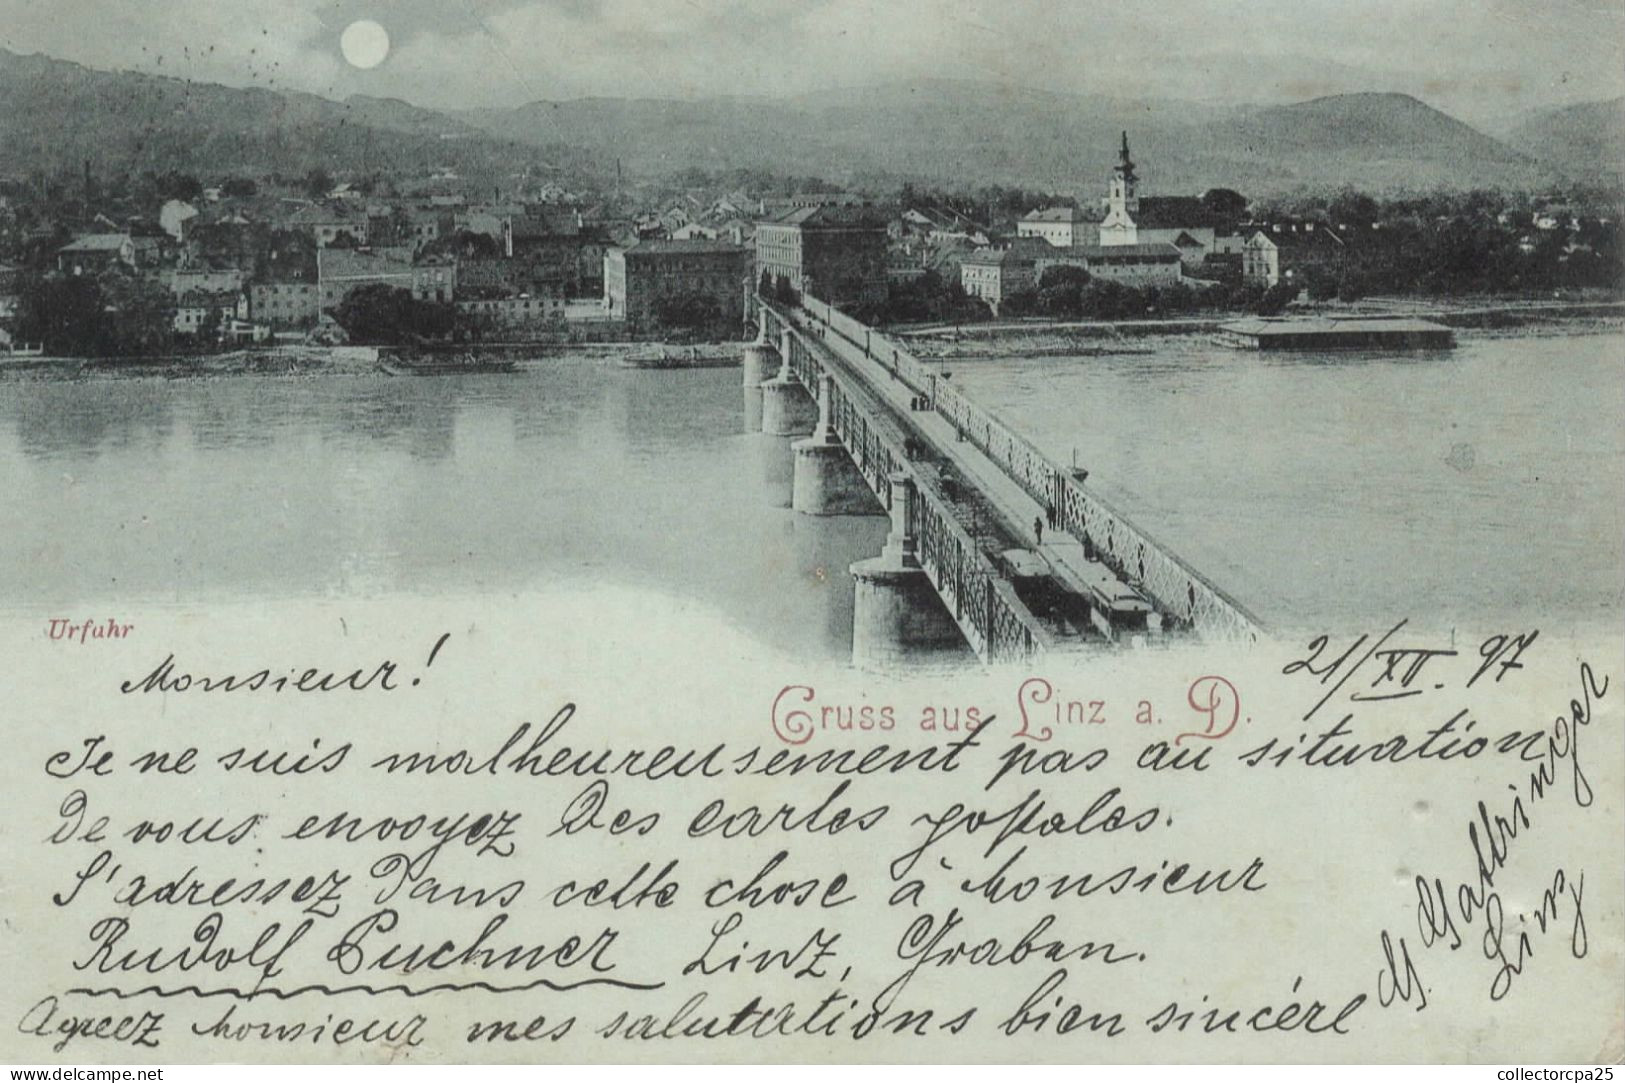 Urfahr
Gruss aus Linz a. D.
21/XII. 97
Monsieur!
Je ne suis malheureusement pas au situation
de vous envoyez des cartes postales.
S'adressez dans cette chose à Monsieur
Rudolf Puchner Linz, Graben.
Agreez Monsieur mes salutations bien sincére
G. Gattringer
Linz
www.delcampe.net
collectorcpa25